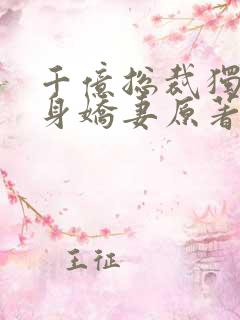 千億總裁獨
身嬌妻原著
王征